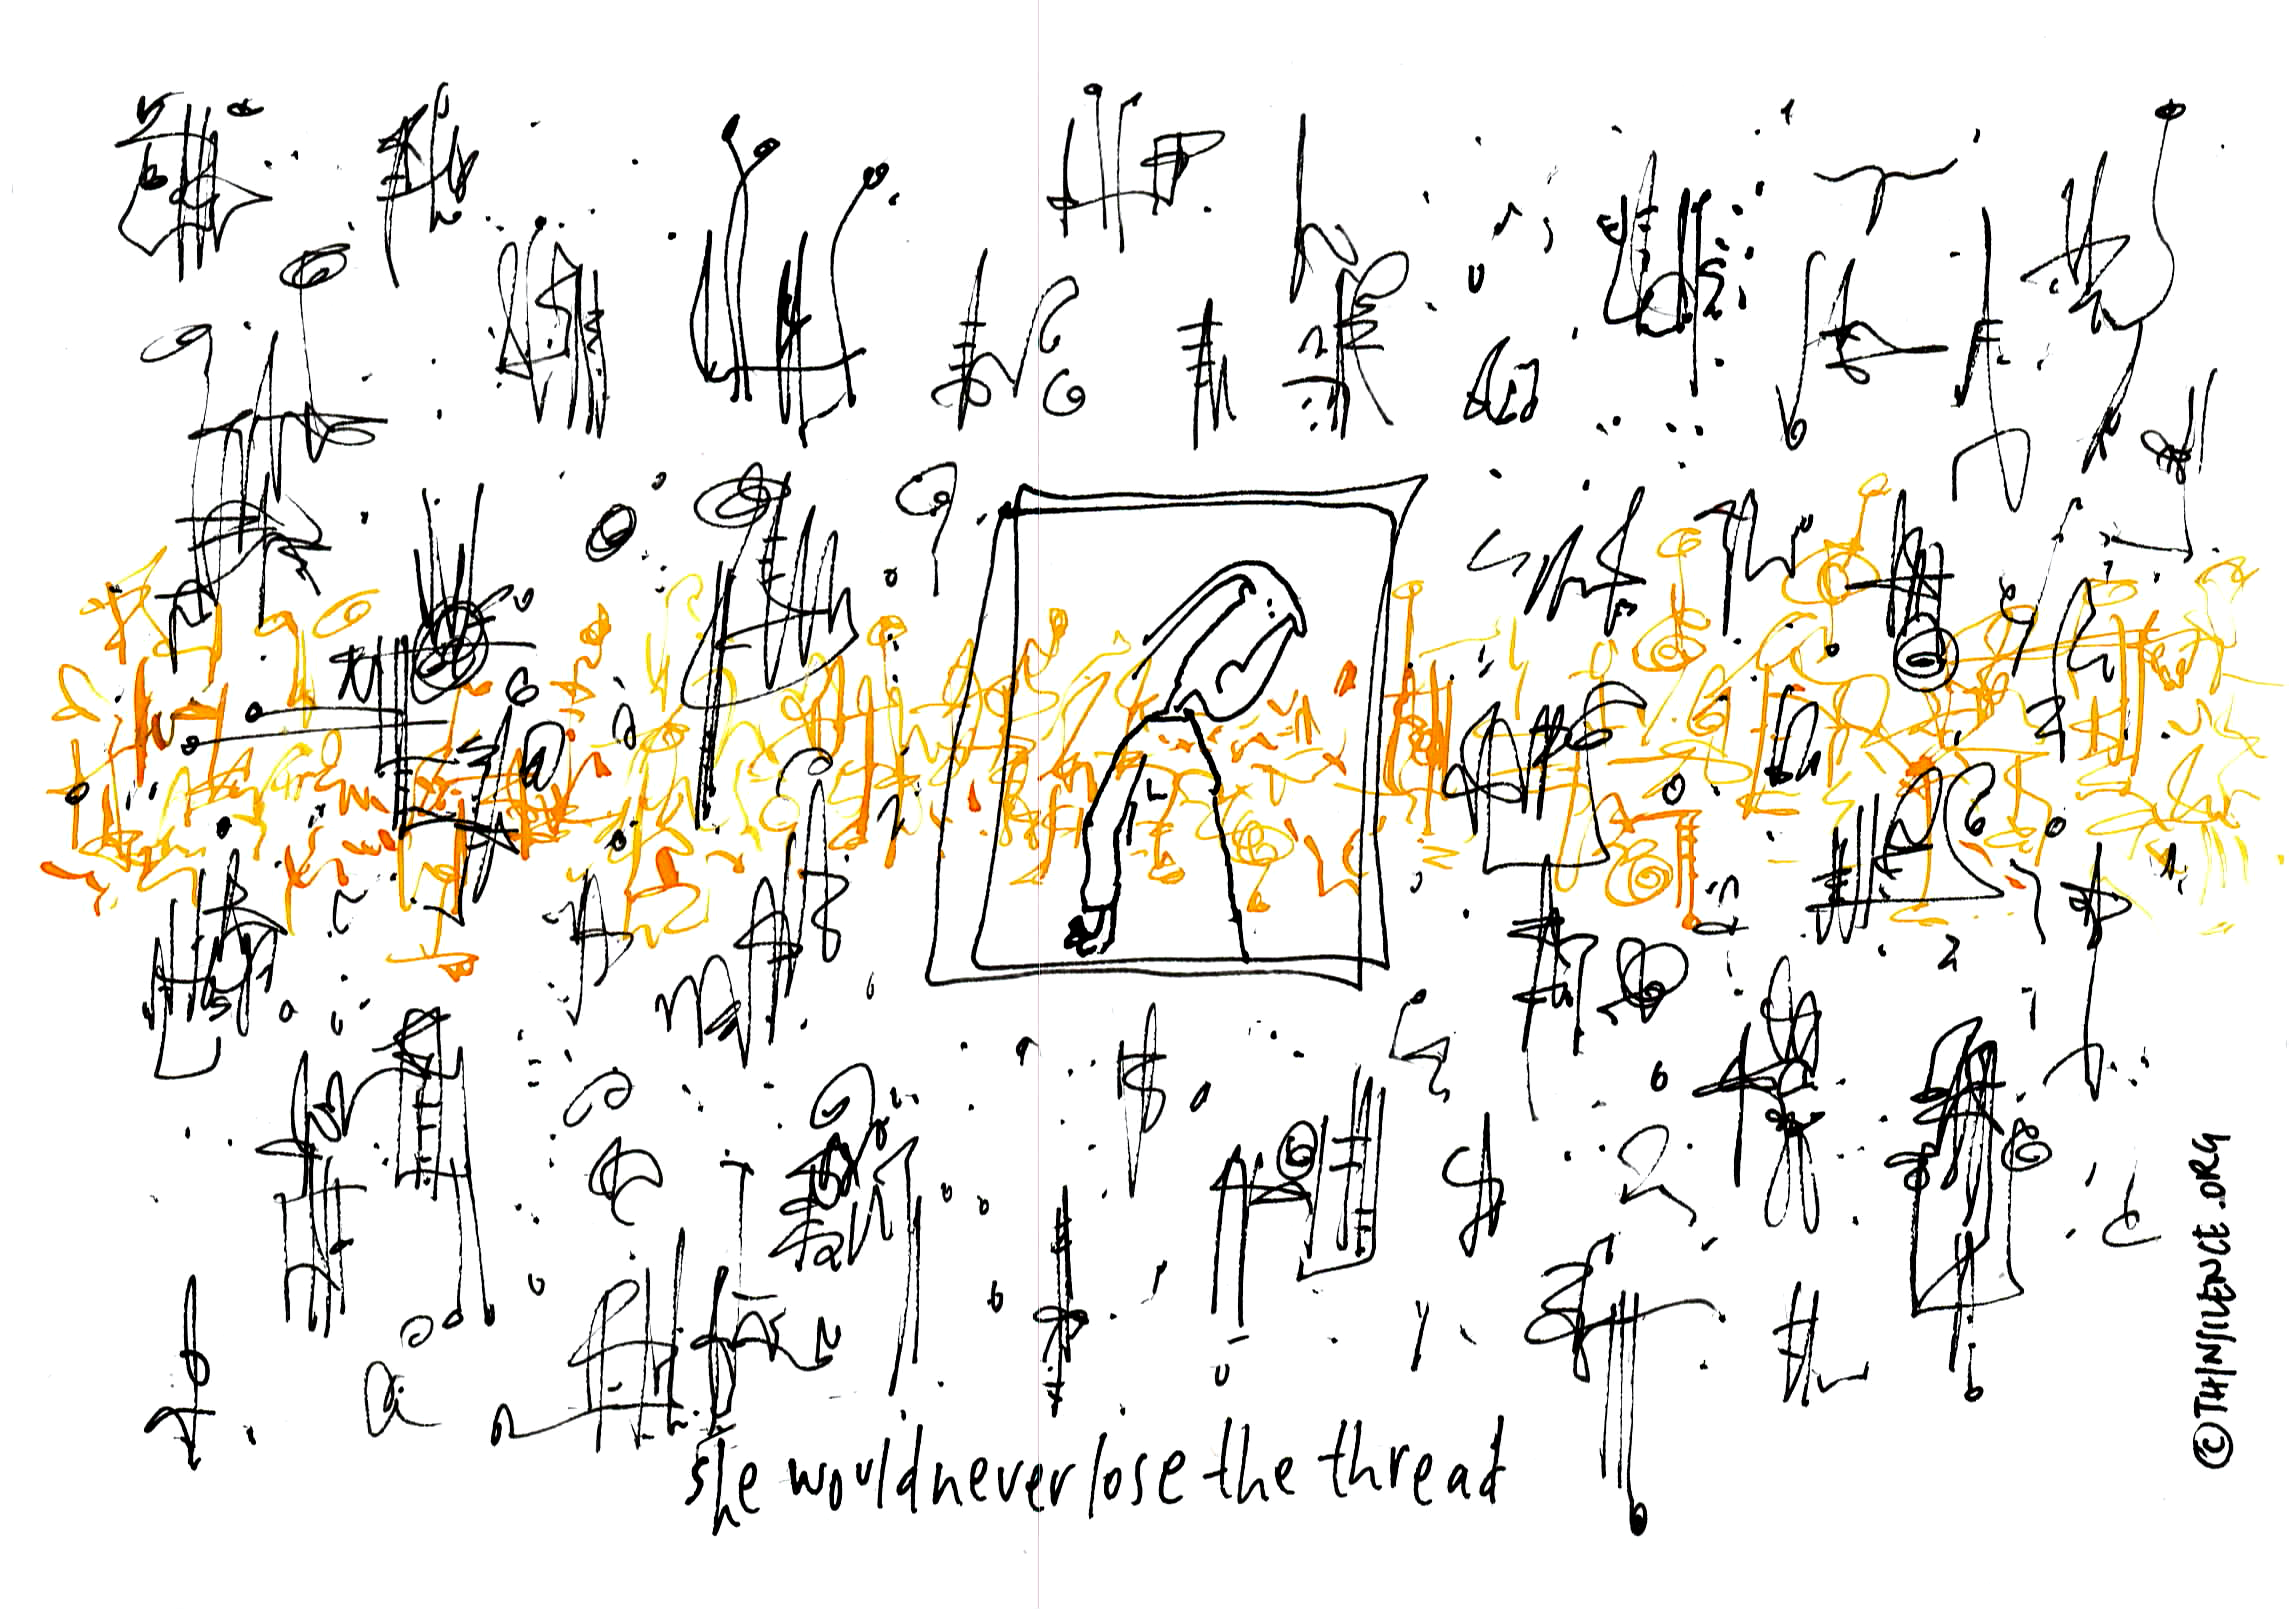 she would never lose the thread
©THINSILENCE.ORG